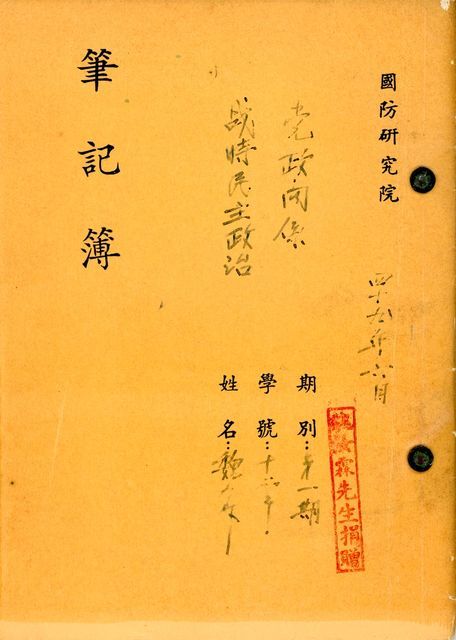 國防研究院
四十九年六月
党政関係
战時民主政治
期別：第一期
學號：十
姓名：魏
筆記簿
汝霖先生捐贈